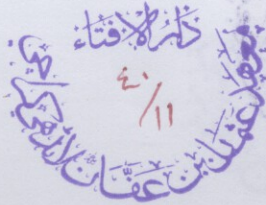 دار الإفتاء
٤٠/١١
معهد عثمان بن عفان لانڈھی کراچی